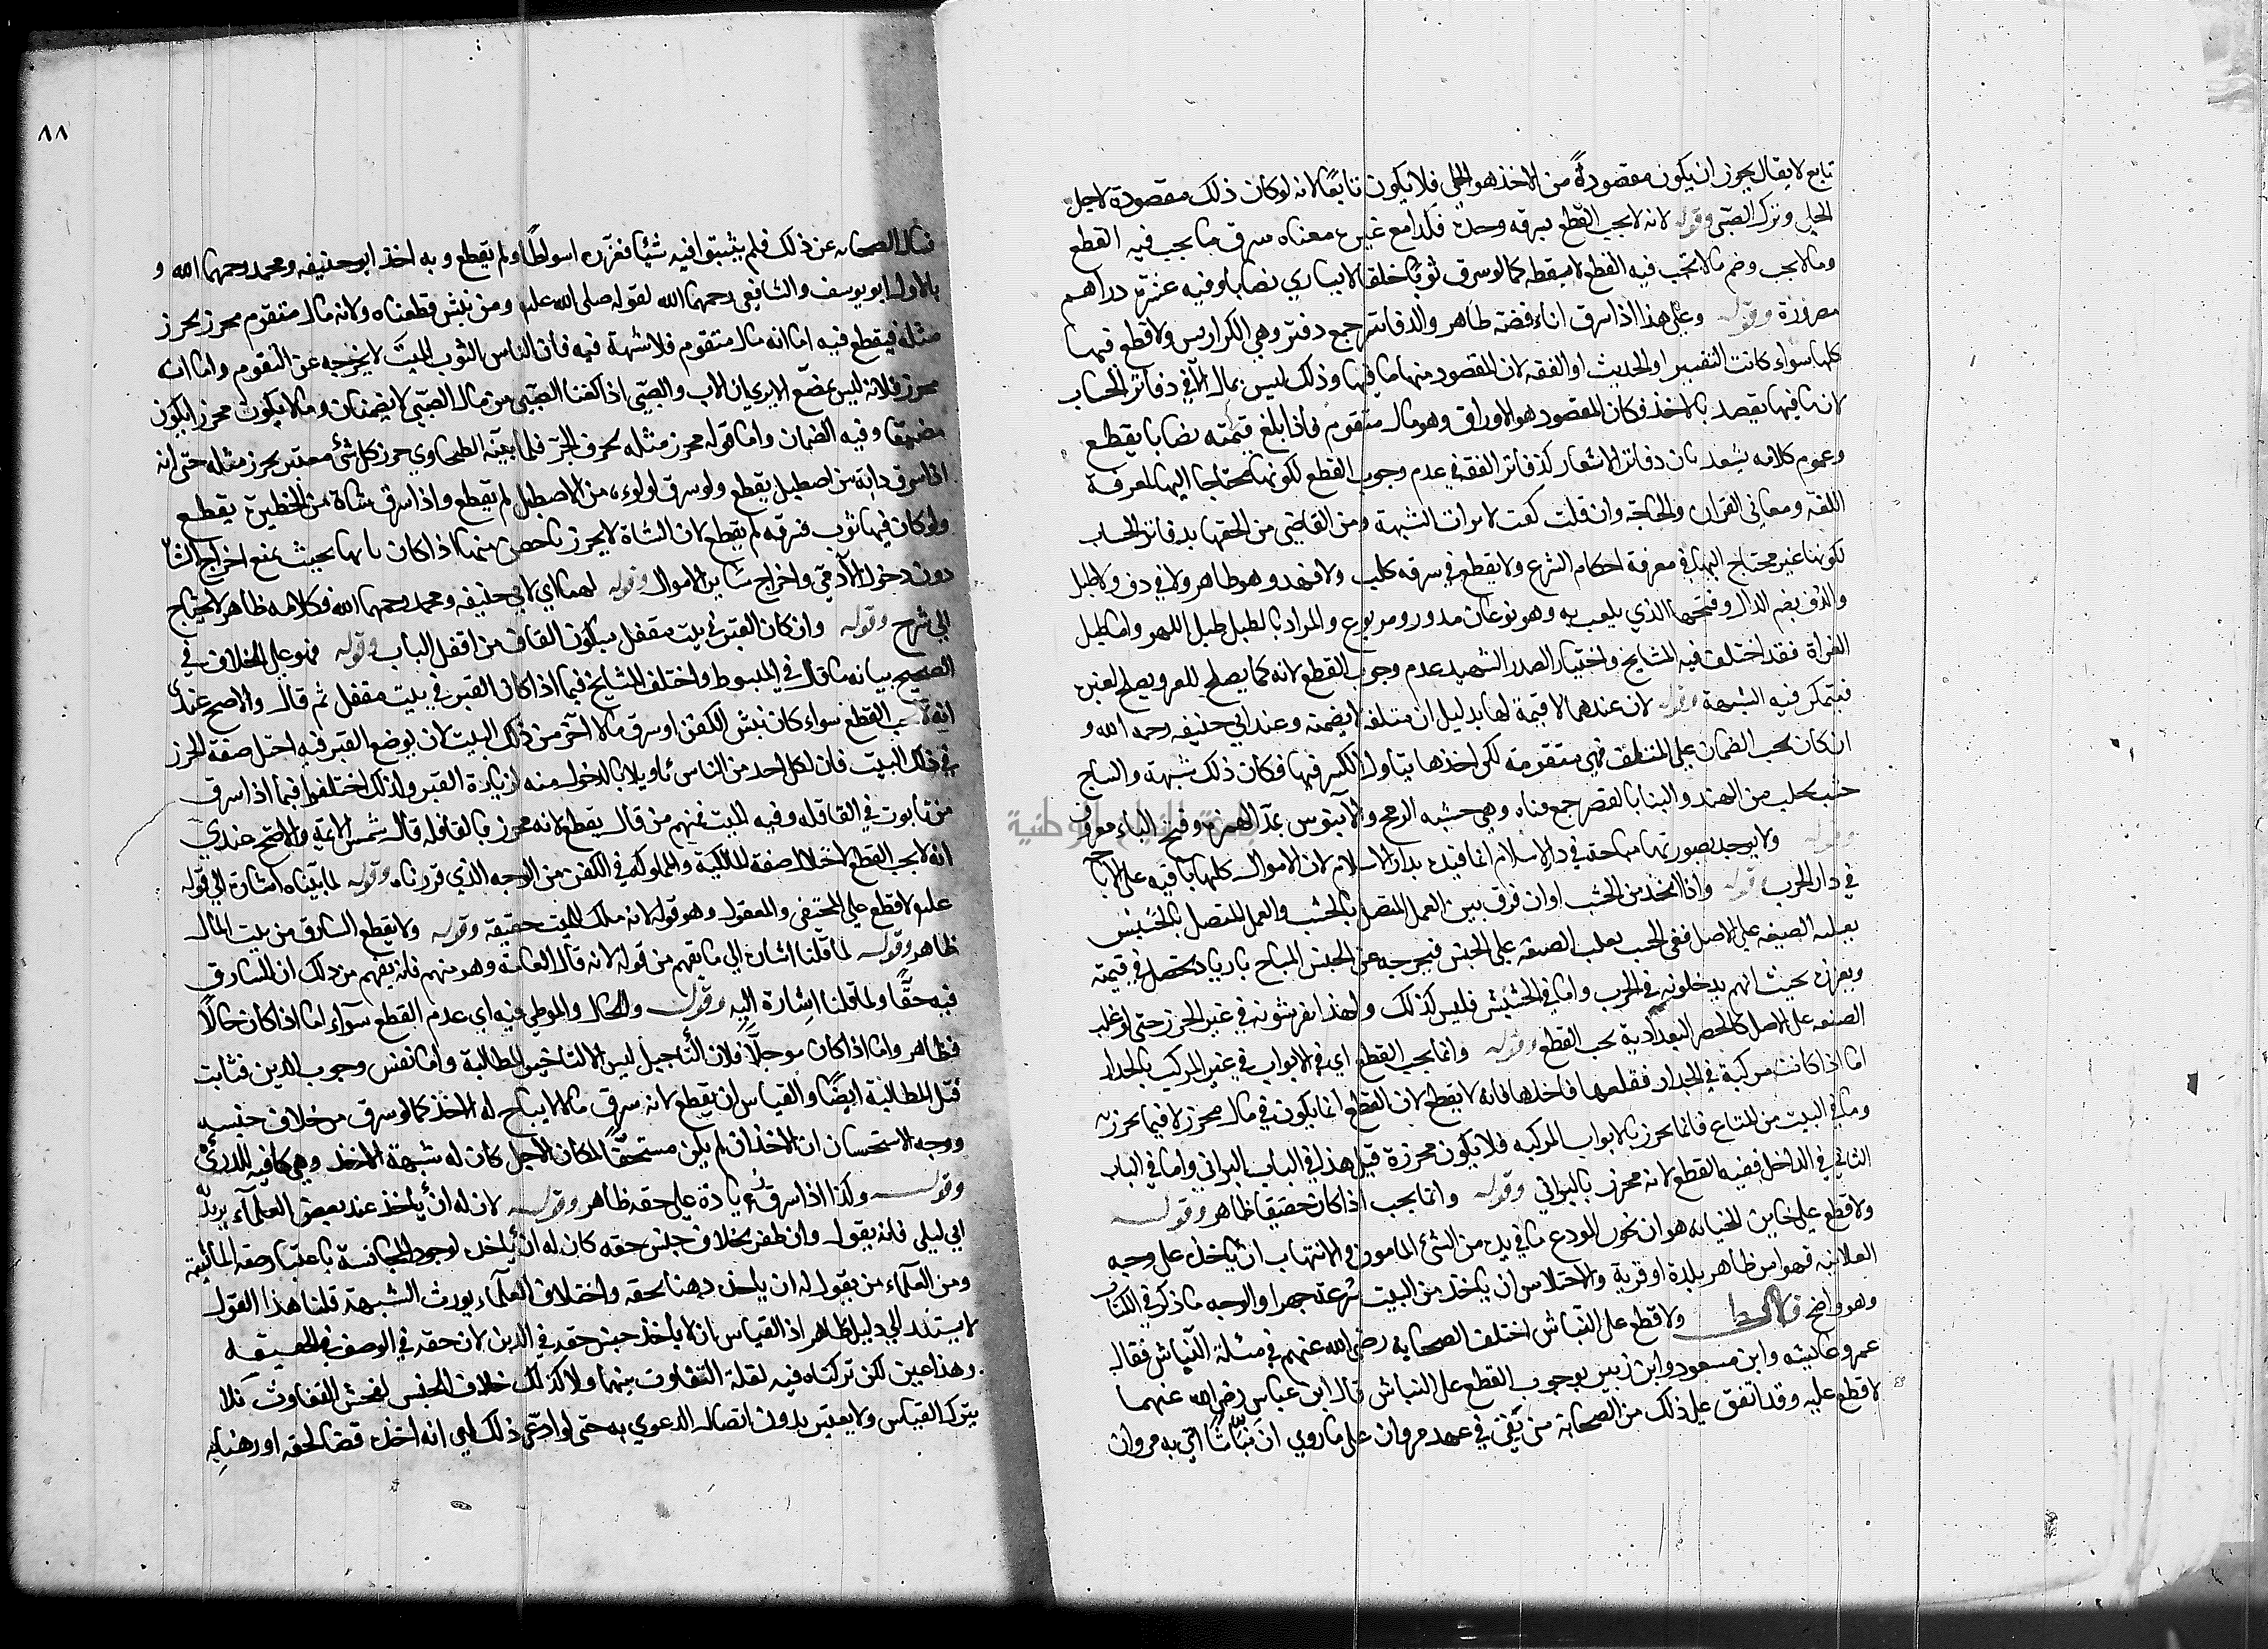 تابع لا يقال يجوز ان يكون مقصودهً من الاخذ هو الحلي فلا يكون تابعًا لانه لو كان ذلك مقصوده لاخذ
الحلي وترك الصبي وقوله لانه لا يجب القطع بسرقه وحده فكذا مع غيره معناه سرق ما يجب فيه القطع
وما لا يجب وضم ما لا تجب فيه القطع لا يسقطه كما لو سرق ثوبًا خلقا لا يساري نصابا وفيه عشرة دراهم
مصرورة وقوله وعلى هذا اذا سرق اناء فضه ظاهر والدفاتر جمع دفتر وهي الكراريس ولا قطع فيها
كلها سواء كانت التفسير او الحديث او الفقه لان المقصود منها ما فيها وذلك ليس بمال الا في دفاتر الحساب
لان ما فيها يقصد بالاخذ فكان المقصود هو الاوراق وهو مال متقوم فاذا بلغ قيمته نصابا يقطع
وعموم كلامه يشعر بان دفاتر الاشعار كدفاتر الفقه في عدم وجوب القطع لكونها محتاجا اليها لمعرفة
اللغة ومعاني القران والحاجة وان قلت كفت لايراث الشبهة ومن القاضي من الحقها بدفاتر الحساب
لكونها غير محتاج اليها في معرفة احكام الشرع ولا يقطع في سرقه كلب ولا فهد وهو ظاهر ولا في دف ولا طبل
والدف بضم الدال وفتحها الذي يلعب به وهو نوعان مدور ومربوع والمراد بالطبل طبل اللهو واما طبل
الغزاة فقد اختلف فيه المشايخ واختيار الصدر الشهيد عدم وجوب القطع لانه كما يصلح للغزو يصلح لغيره
فيتمكن فيه الشبهة وقوله لان عندهما لا قيمة لها بدليل ان متلفه لا يضمنه وعند ابي حنيفه رحمه الله و
ان كان يجب الضمان على المتلف فهي متقومة لكن اخذها يتاول الكسر فيها فكان ذلك شبهة والساج
خشب يجلب من الهند والقنا بالقصر جمع قناه وهي خشبه الرمح والآبنوس بمدّ الهمزه وفتح الباء معروف
وقوله ولا يوجد بصورتها مباحة في دار الاسلام انما قيده بدار الاسلام لان الاموال كلها باقيه على الاباحة
في دار الحرب قوله واذا اتخذ من الخشب اوان فرق بين العمل المتصل بالخشب والعمل المتصل بالحشيش
بغلبه الصنعه على الاصل ففي الخشب يغلب الصنعه على الجنس فيخرجه عن الجنس المباح بازدياد تحصل في قيمته
وبعزة بحيث انهم يدخلونه في الحرز واما في الحشيش فليس كذلك ولهذا يفرشونه في غير الحرز حتى لو غلب
الصنعه على الاصل كالحصر البغدادية يجب القطع وقوله وانما يجب القطع اي في الابواب في غير المركب بالجدار
اما اذا كانت مركبة في الجدار فقلعها فاخذها فانه لا يقطع لان القطع انما يكون في مال محرز لا فيما يحرز به
وما في البيت من المتاع فانما يحرز بالابواب المركبه فلا يكون محرزة قيل هذا في الباب البراني واما في الباب
الثاني في الداخل ففيه القطع لانه محرز بالبراني وقوله وانما يجب اذا كان خفيفا ظاهر وقوله
ولا قطع على خاين الخيانه هو ان يخون المودع ما في يده من الشئ المامون والانتهاب ان ياخذ على وجه
العلانيه فهوا من ظاهر بلدة او قرية والاختلاس ان ياخذ من البيت سرعة جهرا والوجه ما ذكر في الكتاب
وهو واضح قال ولا قطع على النباش اختلف الصحابه رضي الله عنهم في مسئلة النباش فقال
عمر وعايشه وابن مسعود وابن زبير بوجوب القطع على النباش قال ابن عباس رضي الله عنهما
لا قطع عليه وقد اتفق على ذلك من الصحابة من بقي في عهد مروان على ما روي ان نباشًا اتي به مروان
٨٨
فسال الصحابه عن ذلك فلم يثبتوا فيه شيئا فعزّره اسواطًا ولم يقطع وبه اخذ ابو حنيفه ومحمد رحمهما الله و
بالاول ابو يوسف والشافعي رحمهما الله لقوله صلى الله عليه ومن نبش قطعناه ولانه مال متقوم محرز بحرز
مثله فيقطع فيه اما انه مال متقوم فلا شبهة فيه فان الباس الثوب الميت لا يخرجه عن التقوم واما انه
محرز فلانه ليس بمضيّع الا يري ان الاب والصبي اذا كفنا الصبي من مال الصبي لا يضمنان وما لا يكون محرزا يكون
مضيعا وفيه الضمان واما قوله محرز مثله بحرف الجر فلما بيّنه الطحاوي حرز كل شئ معتبر بحرز مثله حتى انه
اذا سرق دابة من اصطبل يقطع ولو سرق لولوءه من الاصطبل لم يقطع واذا سرق شاة من الحظيرة يقطع
ولو كان فيها ثوب فسرقه لم يقطع لان الشاة لا يحرز باحصن منها اذا كان بابها بحيث يمنع اخراج الشاة
دون دخول الآدمي واخراج ساير الاموال وقوله لهما اي لابي حنيفه ومحمد رحمهما الله وكلامه ظاهر لا يحتاج
الي شرح وقوله وان كان القبر في بيت مقفل بسكون القاف من اقفل الباب وقوله فهو على الخلاف في
الصحيح بيانه ما قال في المبسوط واختلف المشايخ فيما اذا كان القبر في بيت مقفل ثم قال والاصح عندي
انه لا يجب القطع سواء كان نبش الكفن او سرق مالا آخر من ذلك البيت لان بوضع القبر فيه اختل صفة الحرز
في ذلك البيت فان لكل احد من الناس تاويلا بالدخول منه لزيارة القبر ولذلك اختلفوا فيما اذا سرق
من تابوت في القافله وفيه الميت فمنهم من قال يقطع لانه محرز بالقافله قال شمس الايمة والاصح عندي
انه لا يجب القطع لاختلال صفة المالكية والمملوكه في الكفن من الوجه الذي قررناه وقوله لما بيناه اشارة الى قوله
عليه لا قطع على المختفي والمعقول وهو قوله لانه ملك للميت حقيقة وقوله ولا يقطع السارق من بيت المال
ظاهر وقوله لما قلنا اشارة الي ما تفهم من قوله لانه قال العامة وهو منهم فانه يفهم من ذلك ان للسارق
فيه حقًّا ولما قلنا اشارة اليه وقوله والحال والموطي فيه اي عدم القطع سوآء اما اذا كان حالًا
فظاهر واما اذا كان موجلًا فلان التأجيل ليس الا لتاخير المطالبة واما نفس وجوب الدين فثابت
قبل المطالبة ايضًا والقياس ان يقطع لانه سرق مالا لا يباح له الاخذ كما لو سرق من خلاف جنسه
ووجه الاستحسان ان الاخذ ان لم يكن مستحقًّا لمكان الاجل كان له شبهة الاخذ وهي كافيه للدرئ
وقوله ولكذا اذا سرق زيادة على حقه ظاهر وقوله لان له ان ياخذ عند بعض العلمآء يريد
ابي ليلى فانه يقول وان ظفر بخلاف جنس حقه كان له ان ياخذ لوجود المجانسة باعتبار صفه المالية
ومن العلمآء من يقول له ان ياخذ رهنا بحقه واختلاف العلمآء يورث الشبهة قلنا هذا القول
لا يستند الي دليل ظاهر اذ القياس ان لا ياخذ جنس حقه في الدين لان حقه في الوصف في الحقيقه
وهذا عين لكن تركناه فيه لقلة التفاوت بينهما ولا كذلك خلاف الجنس لفحش التفاوت فلا
يترك القياس ولا يعتبر بدون اتصال الدعوي به حتى لو ادعى ذلك اي انه اخذه قضا لحقه او رهنا به